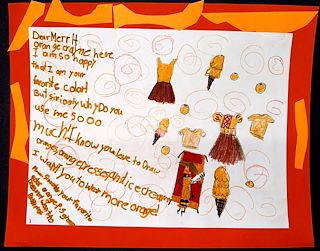 Dear Merrit
orange crayne here
I am so happy
that I am your
favorite color!
But siriosly why Do you
use me so oo
much! I know you love to Draw
oranges, orange dresses, And ice cream!
I want you to wear more orange!
From Orange your favorite